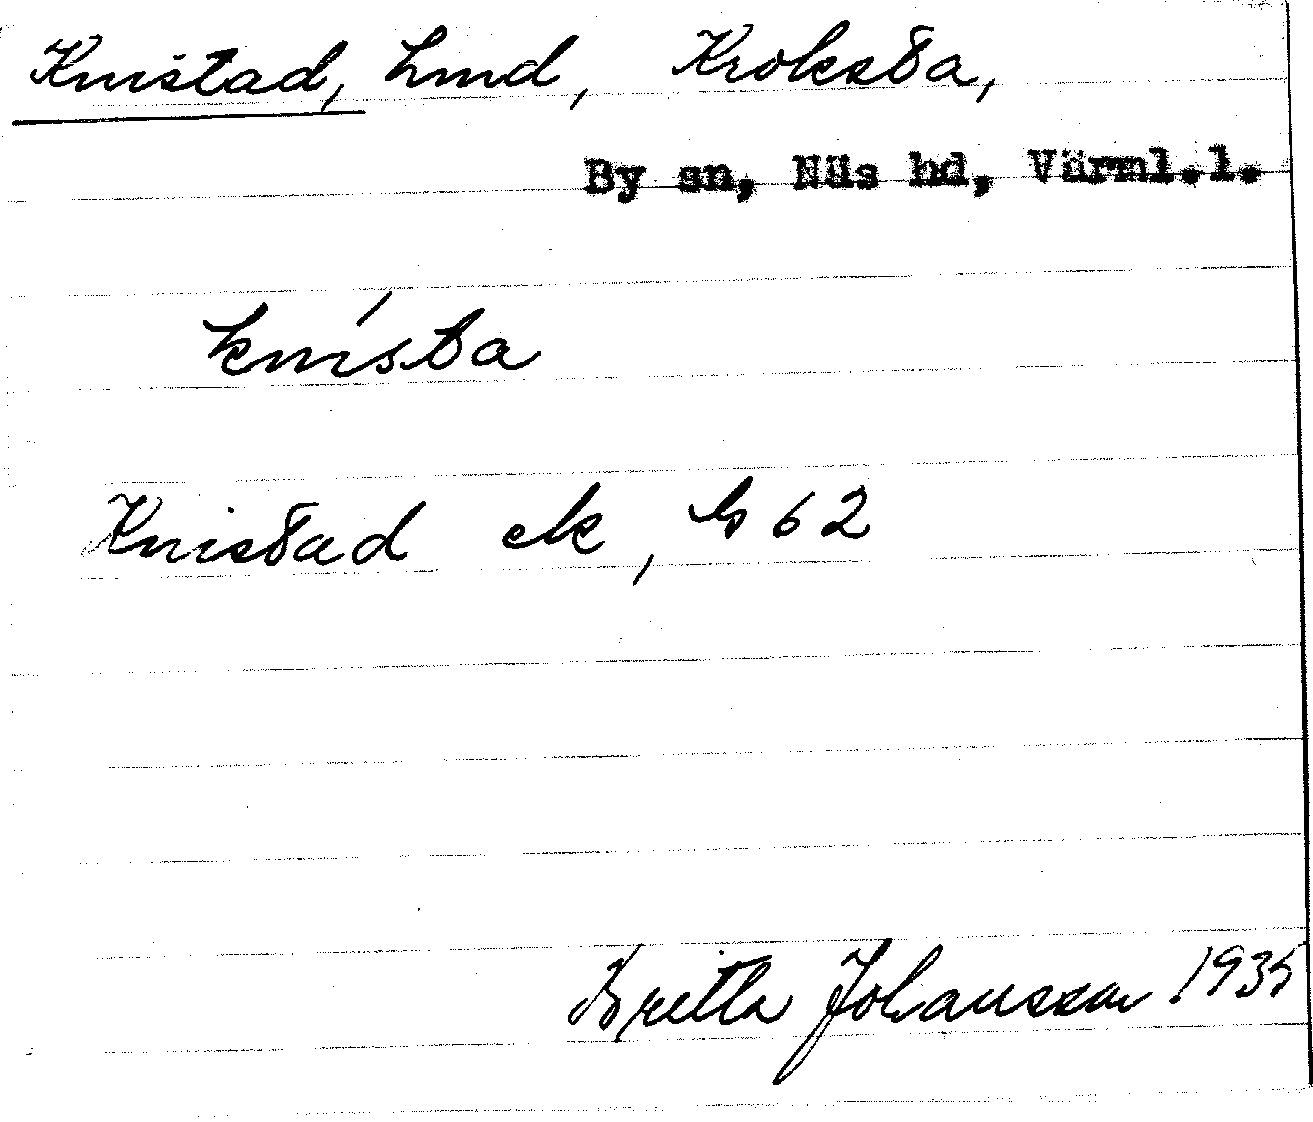 Knistad, hmd, Kroksta,
By sn, Näs hd, Värml.l.
knísta
Knistad ek, b 62
Britta Johansson 1935